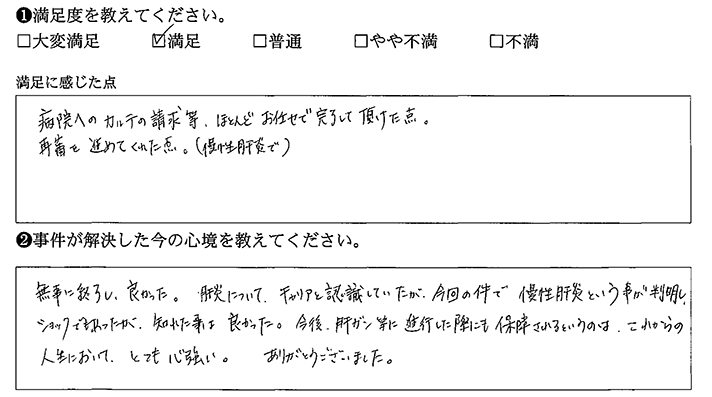 ❶満足度を教えてください。
□大変満足 ☑満足 □普通 □やや不満 □不満
満足に感じた点
病院へのカルテの請求等、ほとんどお任せで完了して頂けた点。
再審を進めてくれた点。(慢性肝炎で)
❷事件が解決した今の心境を教えてください。
無事に終了し、良かった。 肝炎について、キャリアと認識していたが、今回の件で慢性肝炎という事が判明し、
ショックでもあったが、知れた事は良かった。今後、肝ガン等に進行した際にも保障されるというのは、これからの
人生において、とても心強い。 ありがとうございました。